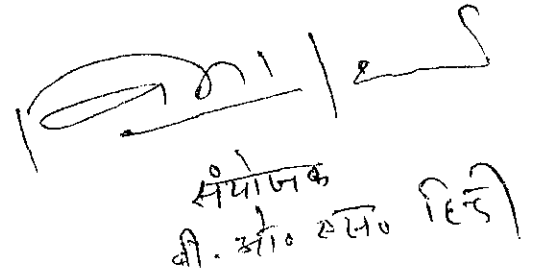 संयोजक
बी. ओ० एस० हिन्दी